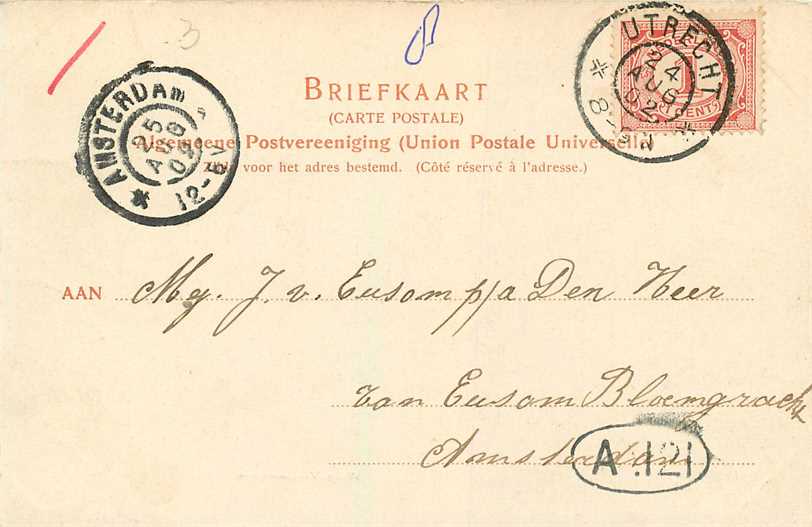 3
8
UTRECHT
24
AUG
02
1 CENT
AMSTERDAM
25
AUG
02
12-6V
BRIEFKAART
(CARTE POSTALE)
Algemeene Postvereeniging (Union Postale Universelle)
Zijde voor het adres bestemd. (Côté réservé à l'adresse.)
AAN Mej. J. v. Eusom p/a Den Heer
van Eusom Bloemgracht
Amsterdam
A.121